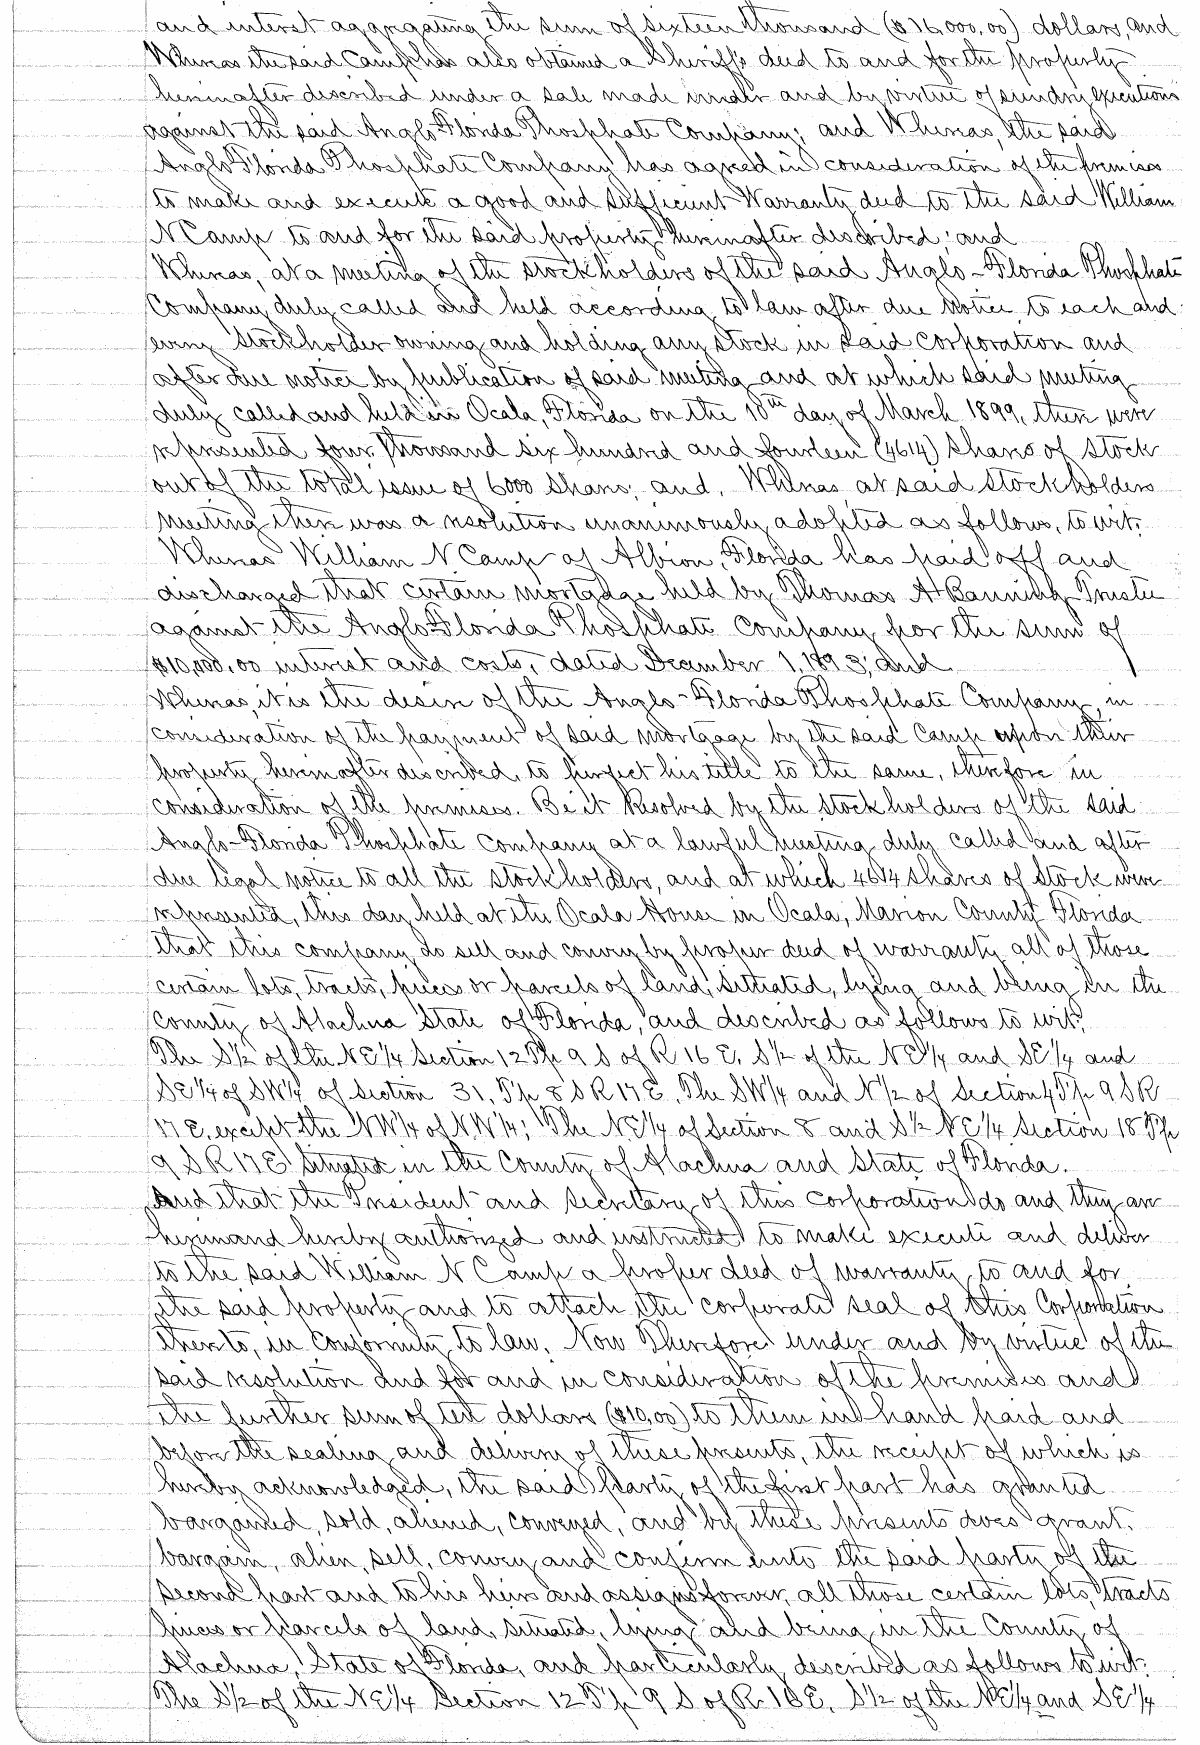 and interest aggregating the sum of sixteen thousand ($16,000,00) dollars, and
Whereas the said Camp has also obtained a Sheriff's deed to and for the property
hereinafter described under a sale made under and by virtue of sundry executions
against the said Anglo Florida Phosphate Company; and Whereas, the said
Anglo Florida Phosphate Company has agreed in consideration of the premises
to make and execute a good and sufficient Warranty deed to the said William
N Camp to and for the said property hereinafter described; and
Whereas, at a meeting of the stockholders of the said Anglo-Florida Phosphate
Company duly called and held according to law after due notice to each and
every stockholder owning and holding any stock in said corporation and
after due notice by publication of said meeting and at which said meeting
duly called and held in Ocala, Florida on the 10th day of March 1899, there were
represented four thousand six hundred and fourteen (4614) shares of stock
out of the total issue of 6000 shares; and, Whereas at said stockholders
meeting there was a resolution unanimously adopted as follows, to wit:
Whereas William N Camp of Albion, Florida has paid off and
discharged that certain mortgage held by Thomas A Banning Trustee
against the Anglo Florida Phosphate Company for the sum of
$10,000.00 interest and costs, dated December 1, 1893; and
Whereas, it is the desire of the Anglo-Florida Phosphate Company, in
consideration of the payment of said mortgage by the said Camp upon their
property hereinafter described, to perfect his title to the same, therefore in
consideration of the premises. Be it Resolved by the stockholders of the said
Anglo-Florida Phosphate Company at a lawful meeting duly called and after
due legal notice to all the stockholders, and at which 4614 shares of stock were
represented, this day held at the Ocala House in Ocala, Marion County Florida
that this company do sell and convey by proper deed of warranty all of those
certain lots, tracts, pieces or parcels of land, situated, lying and being in the
County of Alachua State of Florida, and described as follows to wit:
The S½ of the NE¼ Section 12 Tp 9 S of R 16 E, S½ of the NE¼ and SE¼ and
SE¼ of SW¼ of Section 31, Tp 8 S R 17 E, The SW¼ and N½ of Section 4 Tp 9 S R
17 E, except the NW¼ of NW¼; The NE¼ of Section 8 and S½ NE¼ Section 18 Tp
9 S R 17 E Situated in the County of Alachua and State of Florida.
And that the President and Secretary of this corporation do and they are
hereinand hereby authorized and instructed to make execute and deliver
to the said William N Camp a proper deed of warranty to and for
the said property and to attach the corporate seal of this Corporation
thereto, in conformity to law. Now Therefore under and by virtue of the
said resolution and for and in consideration of the premises and
the further sum of ten dollars ($10,00) to them in hand paid and
before the sealing and delivery of these presents, the receipt of which is
hereby acknowledged, the said party of the first part has granted
bargained, sold, aliened, conveyed, and by these presents does grant,
bargain, alien, sell, convey and confirm unto the said party of the
second part and to his heirs and assigns forever, all those certain lots, tracts
pieces or parcels of land, situated, lying and being in the County of
Alachua, State of Florida, and particularly described as follows to wit:
The S½ of the NE¼ Section 12 Tp 9 S of R 16 E, S½ of the NE¼ and SE¼